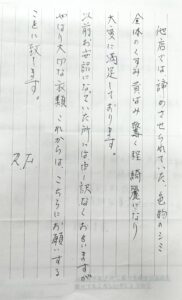 他店では諦めさせられていた色物のシミ
全体のくすみ黄ばみ驚く程綺麗になり
大変に満足しております。
以前お安語になっていた所へは申し訳なくおもいますが
やはり大切な衣類これからは、こちらにお願いする
ことに致します。